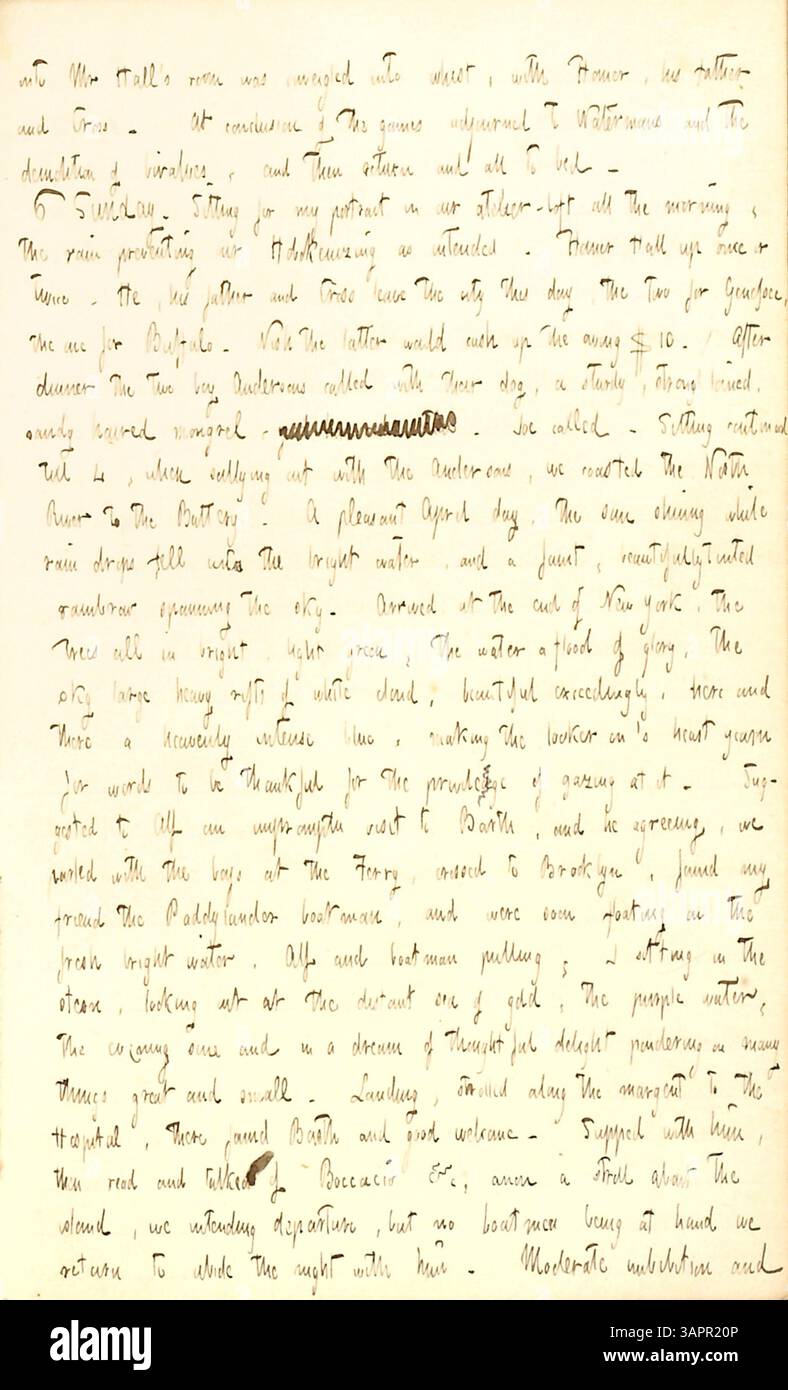 into Mr Hall's room was inveigled into whist, with Homer, his father
and Cross - At conclusion of the games adjourned to Watermans and the
demolition of bivalves, and then return and all to bed -
6 Sunday. Sitting for my portrait in our atelier-loft all the morning,
the rain preventing our Hobokenizing as intended - Homer Hall up once or
twice - He, his father and Cross leave the city this day, the two for Genessee,
the one for Buffalo - Wish the latter would cash up the owing $10 - After
dinner the two boy Andersons called with their dog, a sturdy, strong loined,
sandy haired mongrel - Joe called - Sitting continued
till 4, when sallying out with the Andersons, we coasted the North
River to the Battery - A pleasant April day, the sun shining while
rain drops fell into the bright water, and a faint, beautifully tinted
rainbow spanning the sky - Arrived at the end of New York, the
trees all in bright, light green, the water a flood of glory, the
sky large heavy rifts of white cloud, beautiful exceedingly, here and
there a heavenly intense blue, making the looker on's heart yearn
for words to be thankful for the privilege of gazing at it - Sug-
gested to Alf an impromptu visit to Barth, and he agreeing, we
parted with the boys at the Ferry, crossed to Brooklyn, found my
friend the Paddylander boatman, and were soon floating on the
fresh bright water, Alf and boatman pulling, I sitting in the
stern, looking out at the distant sea of gold, the purple water,
the evening sun and in a dream of thoughtful delight pondering on many
things great and small - Landing, strolled along the margent to the
Hospital, there found Barth and good welcome - Supped with him,
then read and talked of Boccacio &c, anon a stroll about the
island, we intending departure, but no boatmen being at hand we
return to abide the night with him - Moderate imbibition and